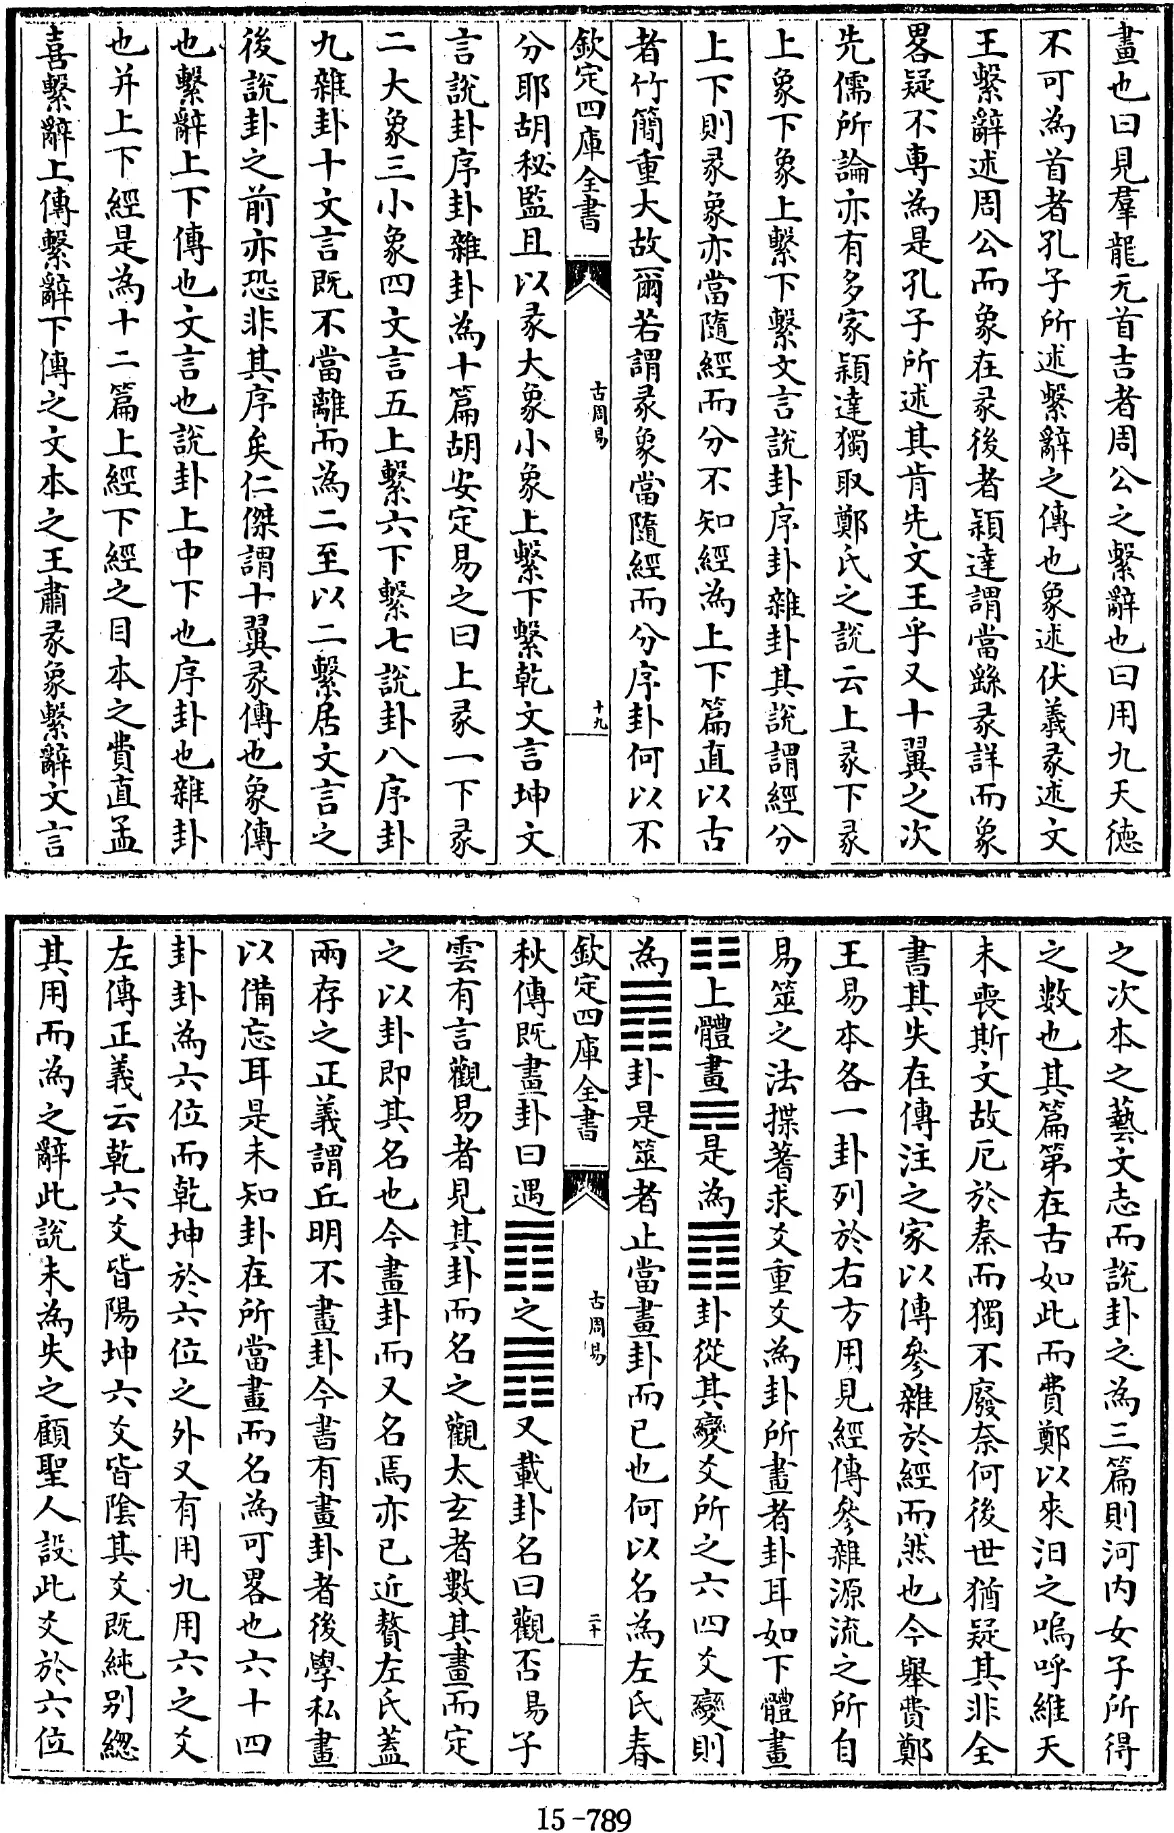 畫也曰見羣龍无首吉者周公之繫辭也曰用九天德
不可為首者孔子所述繫辭之傳也象述伏羲彖述文
王繫辭述周公而象在彖後者穎達謂當繇彖詳而象
畧疑不専為是孔子所述其肯先文王乎又十翼之次
先儒所論亦有多家穎達獨取鄭氏之説云上彖下彖
上象下象上繫下繫文言説卦序卦雜卦其説謂經分
上下則彖象亦當隨經而分不知經為上下篇直以古
者竹簡重大故爾若謂彖象當隨經而分序卦何以不
欽定四庫全書
古周易
十九
分耶胡秘監旦以彖大象小象上繫下繫乾文言坤文
言説卦序卦雜卦為十篇胡安定易之曰上彖一下彖
二大象三小象四文言五上繫六下繫七説卦八序卦
九雜卦十文言既不當離而為二至以二繫居文言之
後説卦之前亦恐非其序矣仁傑謂十翼彖傳也象傳
也繫辭上下傳也文言也說卦上中下也序卦也雜卦
也并上下經是為十二篇上經下經之目本之費直孟
喜繫辭上傳繫辭下傳之文本之王肅彖象繫辭文言
之次本之藝文志而說卦之為三篇則河内女子所得
之數也其篇第在古如此而費鄭以來汨之嗚呼維天
未喪斯文故厄於秦而獨不廢奈何後世猶疑其非全
書其失在傳注之家以傳參雜於經而然也今舉費鄭
王易本各一卦列於右方用見經傳參雜源流之所自
易筮之法揲蓍求爻重爻為卦所畫者卦耳如下體畫
☷上體畫☴是為䷓卦從其變爻所之六四爻變則
為䷋卦是筮者止當畫卦而已也何以名為左氏春
欽定四庫全書
古周易
二十
秋傳既畫卦曰遇䷓之䷋又載卦名曰觀否易子
雲有言觀易者見其卦而名之觀太玄者數其畫而定
之以卦即其名也今畫卦而又名焉亦已近贅左氏蓋
兩存之正義謂丘明不畫卦今書有畫卦者後學私畫
以備忘耳是未知卦在所當畫而名為可畧也六十四
卦卦為六位而乾坤於六位之外又有用九用六之爻
左傳正義云乾六爻皆陽坤六爻皆陰其爻既純别緫
其用而為之辭此説未為失之顧聖人設此爻於六位
15-789